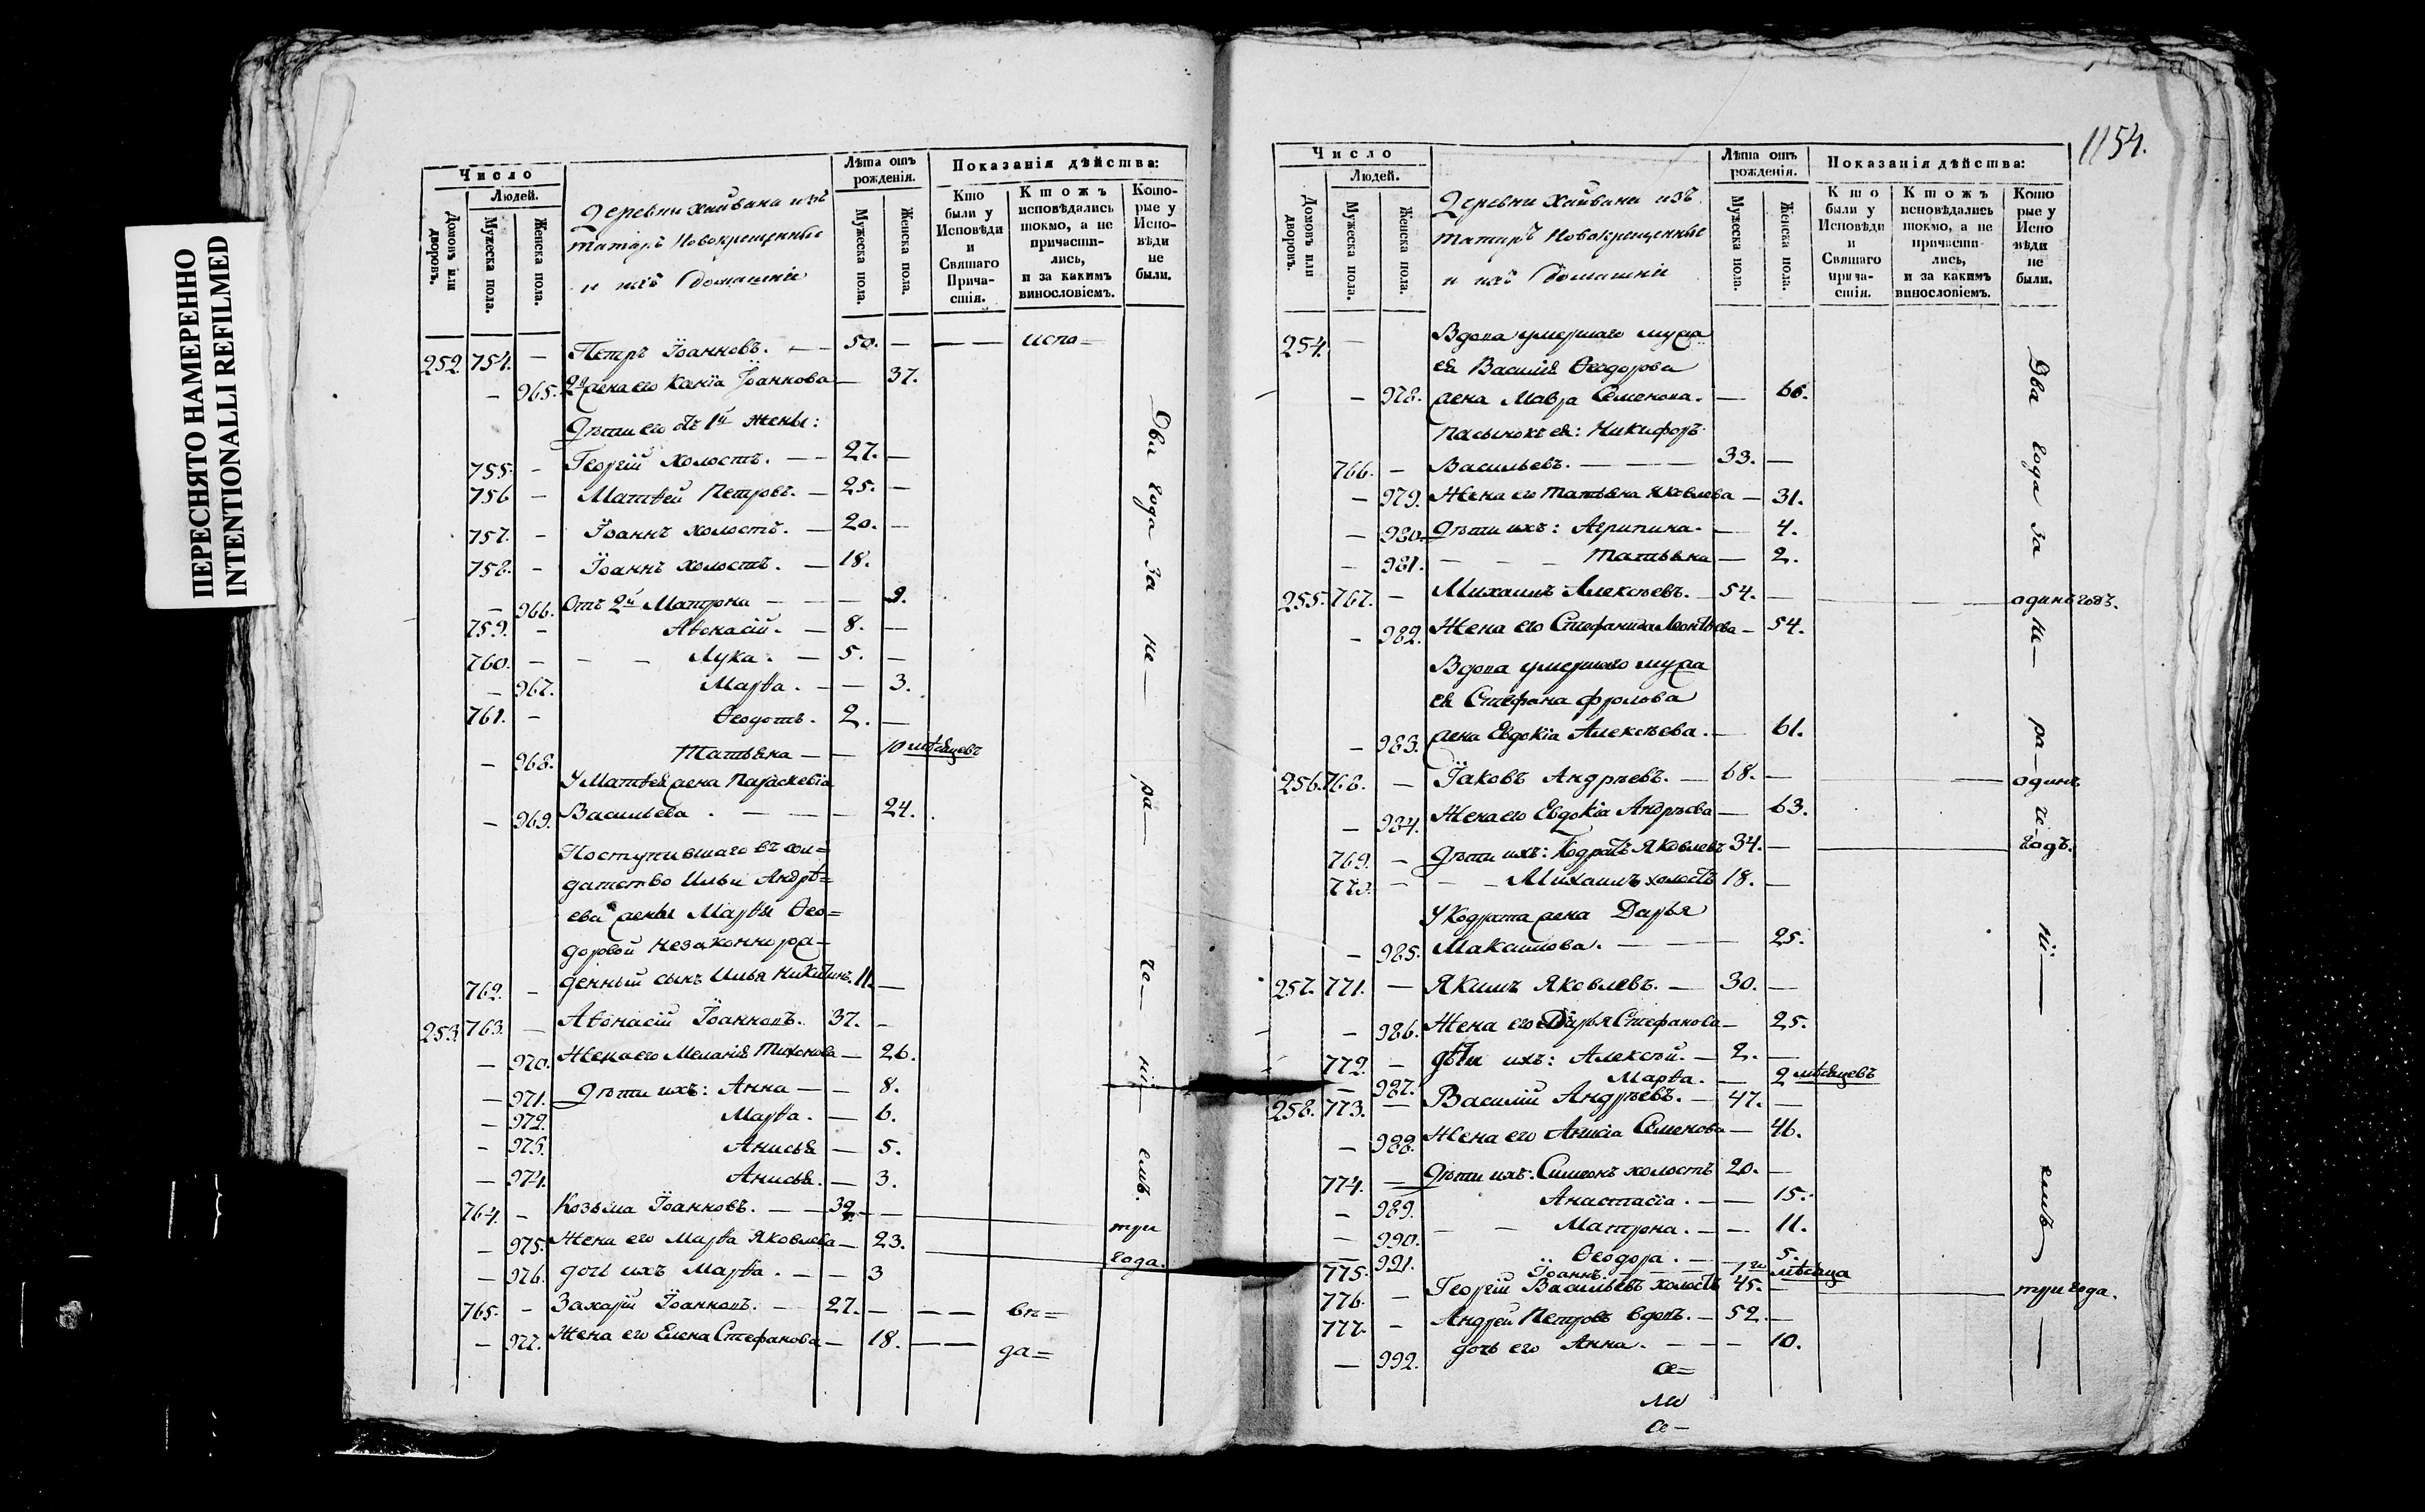 ПЕРЕСНЯТО НАМЕРЕННО
INTENTIONALLI REFILMED
Число
Домовъ или дворовъ.
Людей.
Мужеска пола.
Женска пола.
Деревни Хайвана изъ
татаръ Новокрещенные
и ихъ домашніе
Лѣта отъ рожденія.
Мужеска пола.
Женска пола.
Показанія дѣйства:
Кто были у Исповѣди и Святаго Причастія.
Ктожъ исповѣдались токмо, а не причастились, и за какимъ винословіемъ.
Которые у Исповѣди не были.
252. 754. — Петръ Іоанновъ. — 50. — — — испо=
— 965. 2я жена его Ксенія Іоаннова — 37.
Дѣти его отъ 1й жены:
755. — Георгій холостъ. — — 27. —
756 — Матѳей Петровъ. — 25. —
757. — Іоаннъ холостъ. — 20. —
758. — Іоаннъ холостъ. — 18.
— 966. Отъ 2й Матрона — — — 9.
759. — Аѳонасій. — 8. —
760. — — — Лука. — 5. —
— 967. Марѳа. — — 3.
761. — Ѳеодотъ. 2. —
— 968. Татьяна — — 10 мѣсяцевъ
У Матѳея жена Параскевіа
— 969. Васильева. — — — 24.
Поступившаго въ сол=
датство Ильи Андрѣ=
ева жены Марѳы Ѳео=
доровой незаконнора=
762. — жденный сынъ Илья Никитинъ. 11. —
253. 763. — Аѳонасій Іоанновъ. 37. —
— 970. Жена его Меланія Тихонова — 26.
— 971. Дѣти ихъ: Анна — — 8.
— 972. Марѳа. — 6.
— 973. Анисья — 5.
— 974. Анисья. — 3.
764. — Козьма Іоанновъ. — — 32. — три
— 975. Жена его Марѳа Яковлева — 23. года.
— 976. дочь ихъ Марѳа. — — 3
765. — Захарій Іоанновъ. — 27. — — — вѣ=
— 977. Жена его Елена Стефанова — 18. — — да=
Два года за не— ра— че— ні— емъ.
1154.
Число
Домовъ или дворовъ.
Людей.
Мужеска пола.
Женска пола.
Деревни Хайвани изъ
татаръ Новокрещенные
и ихъ домашніе
Лѣта отъ рожденія.
Мужеска пола.
Женска пола.
Показанія дѣйства:
Кто были у Исповѣди и Святаго причастія.
Ктожъ исповѣдались токмо, а не причастились, и за какимъ винословіемъ.
Которые у Исповѣди не были.
254. — Вдова умершаго мужа
ея Василія Ѳеодорова
— 978. жена Мавра Семенова. — 66.
Пасынокъ ея: Никифоръ
766. — Васильевъ. — — — 33. —
— 979. Жена его Татьяна Яковлева — 31.
— 980. Дѣти ихъ: Агрипина. — 4.
— 981. — — — Татьяна — 2.
255. 767. — Михаилъ Алексѣевъ. — 54. — одинъ годъ.
— 982. Жена его Стефанида Леонтьева — 54.
Вдова умершаго мужа
ея Стефана Фролова
— 983. жена Евдокіа Алексѣева. — 61.
256. 768. — Іаковъ Андрѣевъ. — 68. — одинъ
— 984. Жена его Евдокіа Андрѣева — 63.
769. — Дѣти ихъ: Кодратъ Яковлевъ 34. — годъ.
770. — — — Михаилъ холостъ 18. —
У Кодрата жена Дарья
— 985. Максимова. — — — 25.
257. 771. — Якимъ Яковлевъ. — 30. —
— 986. Жена его Дарья Стефанова — 25.
772. — дѣти ихъ: Алексѣй. — 2. —
— 987. Марѳа. — 2 мѣсяцевъ
258. 773. — Василій Андрѣевъ. — 47. —
— 988. Жена его Анисіа Семенова — 46.
774. — Дѣти ихъ: Симеонъ холостъ 20. —
— 989. Анастасіа. — — 15.
— 990. — — Матрона. — — 11.
— 991. Ѳеодора. — — 5.
775. Іоаннъ. — — 1го мѣсяца
776. — Георгій Васильевъ холостъ 45. — три года.
777. — Андрей Петровъ вдовъ. — 52. —
— 992. дочь его Анна. — — — 10.
Два года за не— ра— че— ні— емъ